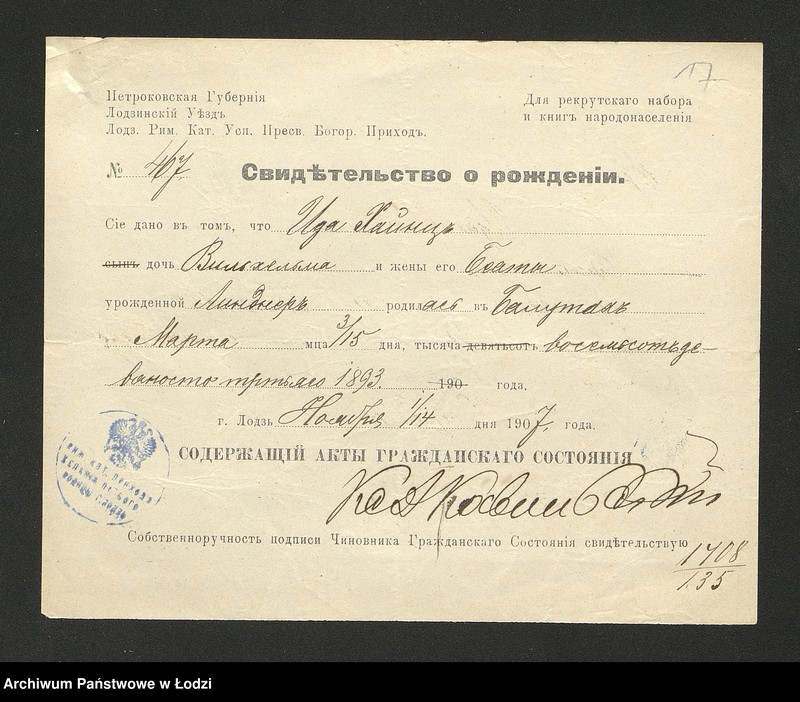 17
Петроковская Губернія
Лодзинскій Уѣздъ
Лодз. Рим. Кат. Усп. Пресв. Богор. Приходъ.
Для рекрутскаго набора
и книгъ народонаселенія
№ 467
Свидѣтельство о рожденіи.
Сіе дано въ томъ, что Ида Хайнцъ
сынъ дочь Вильхельма и жены его Беаты
урожденной Линднеръ родилась въ Балутахъ
Марта мца 3/15 дня, тысяча девятьсотъ восемьсотъ де-
вяносто третьяго 1893. 190 года.
г. Лодзь Ноября 1/14 дня 1907. года.
СОДЕРЖАЩІЙ АКТЫ ГРАЖДАНСКАГО СОСТОЯНІЯ
Собственноручность подписи Чиновника Гражданскаго Состоянія свидѣтельствую
1708
135
Archiwum Państwowe w Łodzi